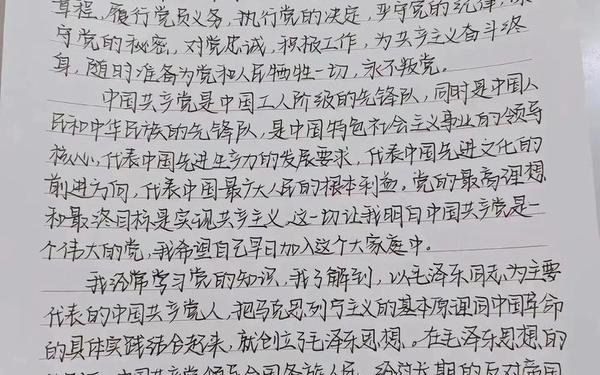 章程，履行党员义务，执行党的决定，严守党的纪律，保
守党的秘密，对党忠诚，积极工作，为共产主义奋斗终
身，随时准备为党和人民牺牲一切，永不叛党。
中国共产党是中国工人阶级的先锋队，同时是中国人
民和中华民族的先锋队，是中国特色社会主义事业的领导
核心，代表中国先进生产力的发展要求，代表中国先进文化的
前进方向，代表中国最广大人民的根本利益。党的最高理想
和最终目标是实现共产主义。这一切让我明白中国共产党是一
个伟大的党，我希望自己早日加入这个大家庭中。
我经常学习党的知识，我了解到，以毛泽东同志为主要
代表的中国共产党人，把马克思列宁主义的基本原理同中国革命
的具体实践结合起来，就创立了毛泽东思想。在毛泽东思想的
中国共产党领导全国各族人民，经过长期的反对帝国